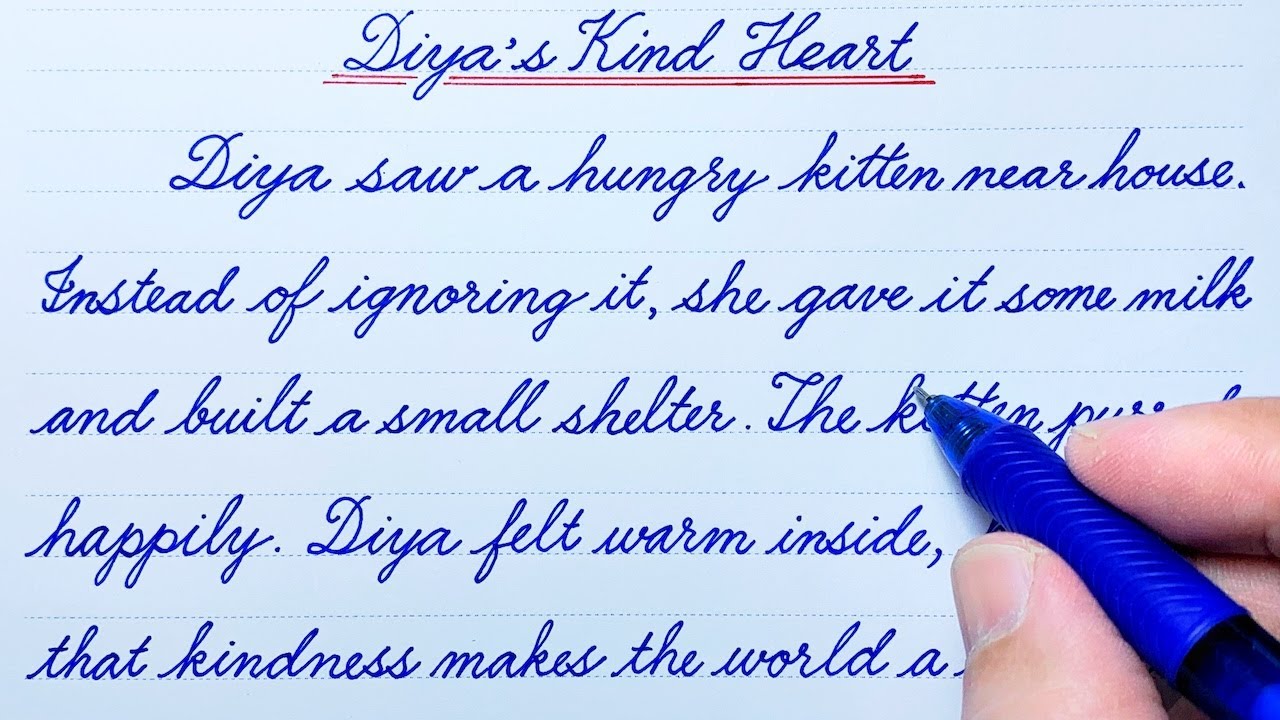 Diya's Kind Heart
Diya saw a hungry kitten near house.
Instead of ignoring it, she gave it some milk
and built a small shelter. The kitten purred
happily. Diya felt warm inside,
that kindness makes the world a